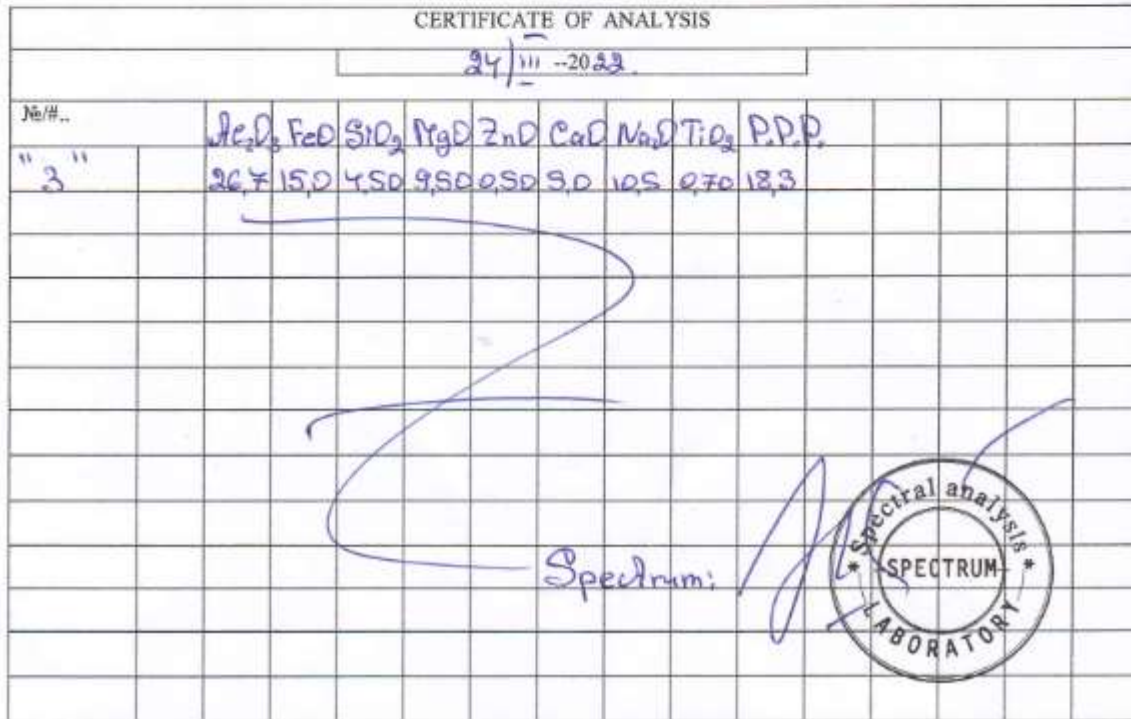 CERTIFICATE OF ANALYSIS
24/III --2022.
№/#..
Al₂O₃ FeO SiO₂ MgO ZnO CaO Na₂O TiO₂ P.P.P.
"3" 26,7 15,0 4,50 9,50 0,50 9,0 10,5 0,70 18,3
Spectrum:
* Spectral analysis *
SPECTRUM
LABORATORY